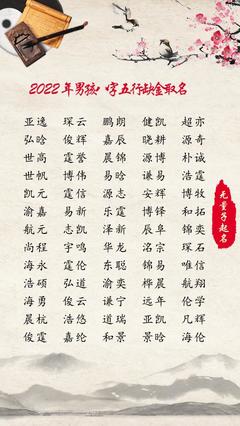 2022年男孩,字五行缺金取名
亚逸 琛云 鹏朗 健凯 超亦
弘晗 俊辉 嘉辰 晓耕 源奇
世高 霆誉 晨锦 源博 朴诚
世帆 博伟 易信 谦易 浩霆
凯元 霆信 源志 安辉 博牧
渝嘉 易新 乐霆 博铎 和拓
航元 志凯 泽新 阜辰 锦奕
尚程 宇鸣 华龙 洺宗 琛石
海永 霆伦 东聪 锦易 唯信
浩硕 弘道 渝奕 桦晨 航翔
海勇 俊云 谦宁 远年 伦学
晨杭 浩悠 道瑞 亚凡 凡辉
俊霆 嘉纶 和景 景晗 海伦
无量子起名